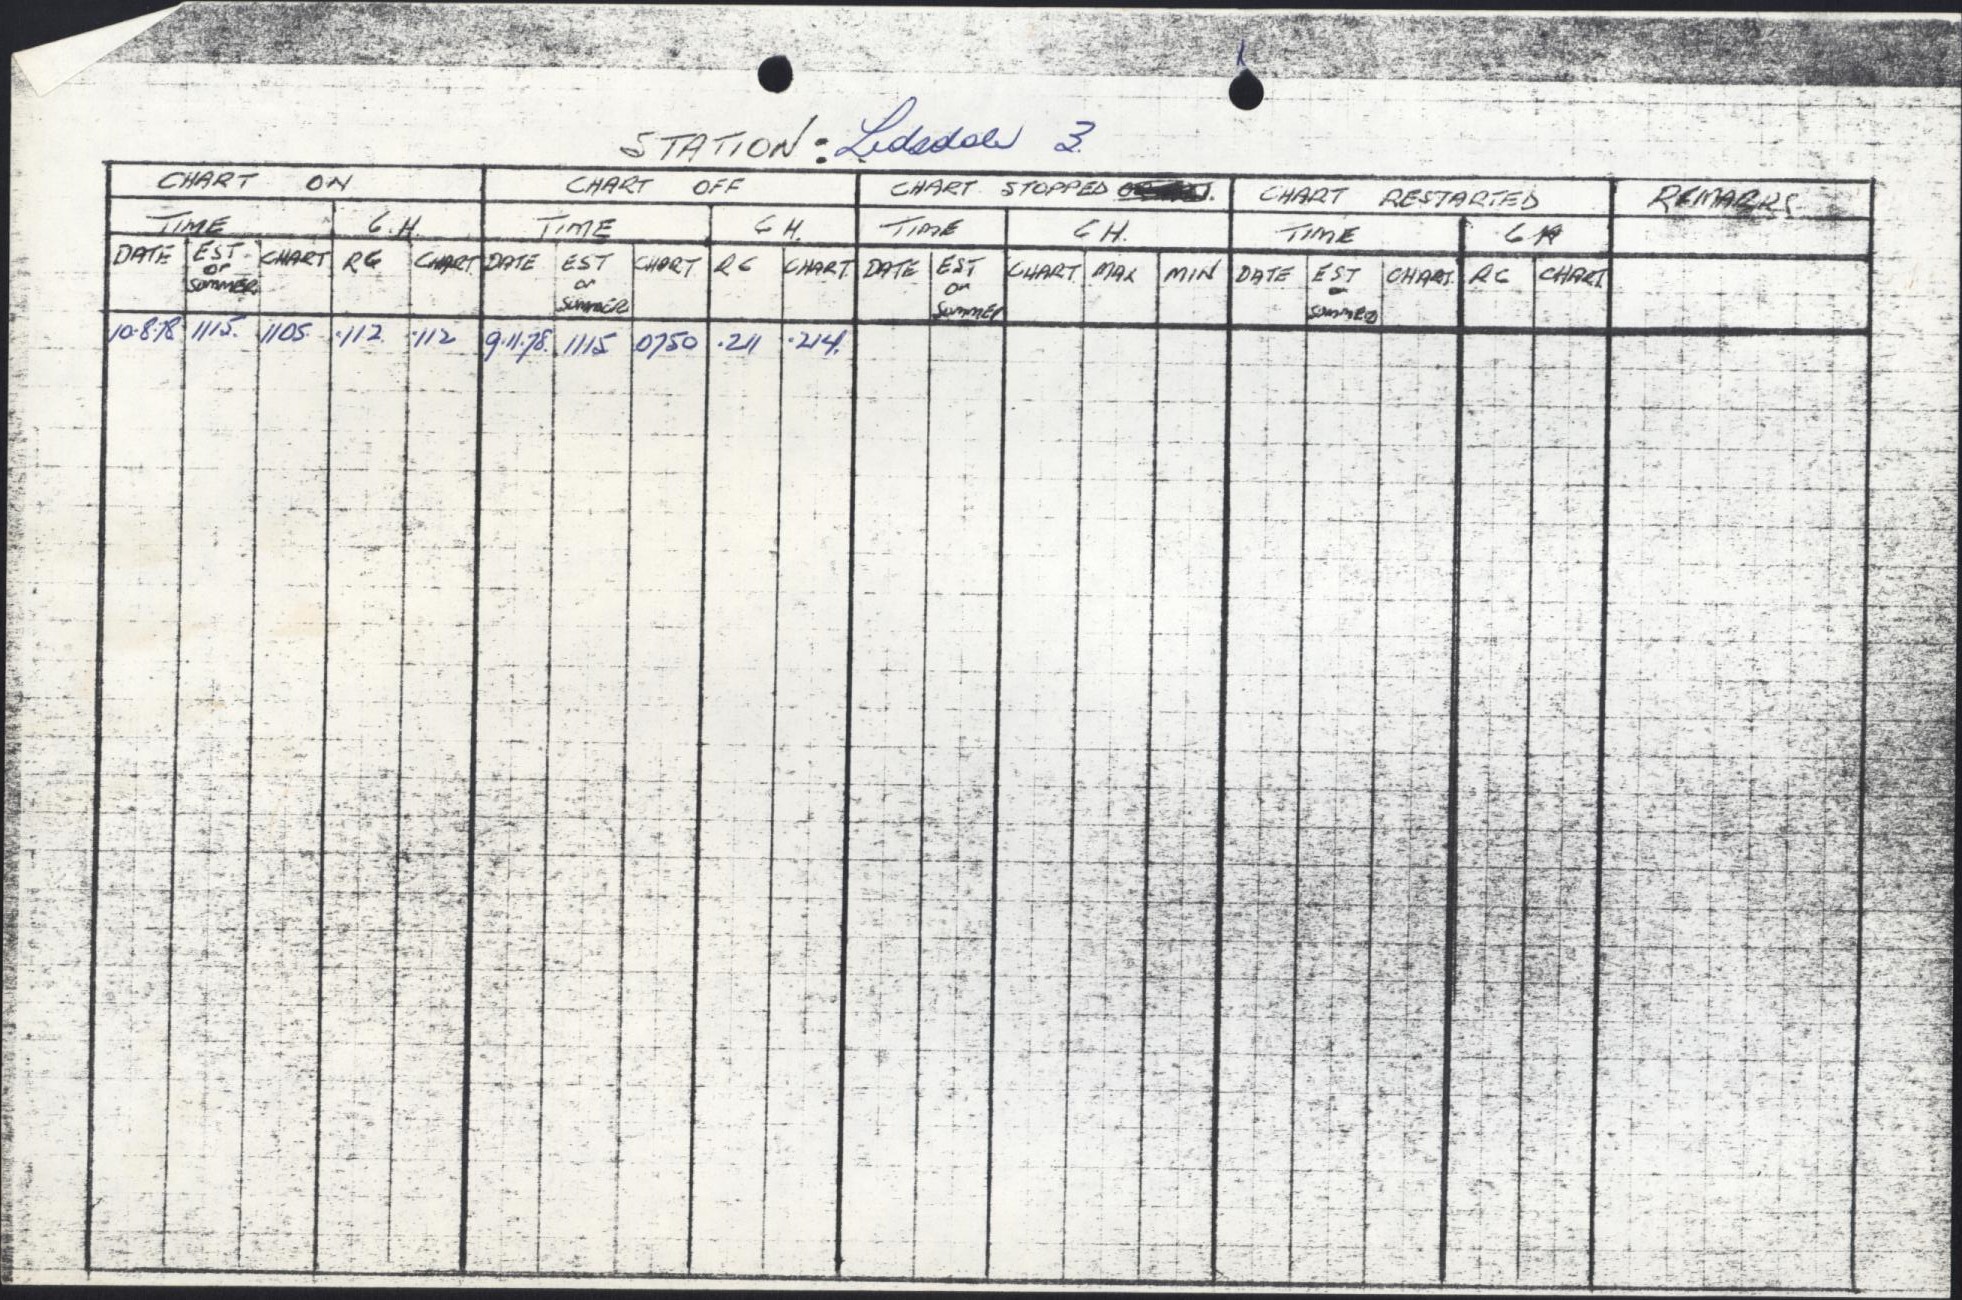 STATION: Lidsdale 3
CHART ON CHART OFF CHART STOPPED CHART RESTARTED REMARKS
TIME G.H. TIME G H. TIME G H. TIME G H
DATE EST or SUMMER CHART RG CHART DATE EST or SUMMER CHART RG CHART DATE EST or SUMMER CHART MAX MIN DATE EST or SUMMER CHART RG CHART
10.8.78 1115. 1105 .112 .112 9.11.78. 1115 0750 .211 .214.